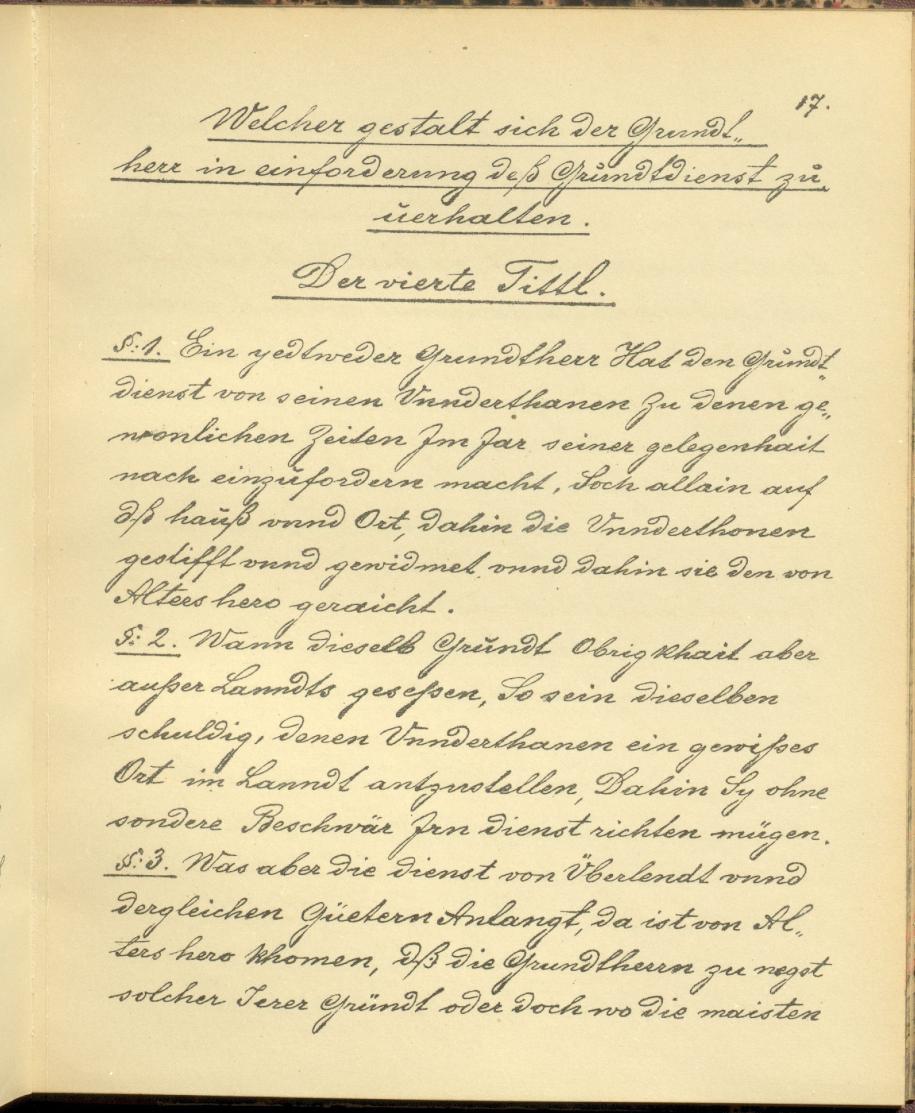 17.
Welcher gestalt sich der Grundt„
herr in einforderung deß Gründtdienst zu
uerhalten.
Der vierte Tittl.
§:1. Ein yedtweder Grundtherr Hat den Gründt„
dienst von seinen Vnnderthanen zu denen ge„
wonlichen Zeiten Jm Jar seiner gelegenhait
nach einzufordern macht, Doch allain auf
dß hauß vnnd Ort, dahin die Vnnderthonen
gestifft vnnd gewidmet vnnd dahin sie den von
Alters hero geraicht.
§: 2. Wann dieselb Gründt Obrigkhait aber
außer Lanndts geseßen, So sein dieselben
schuldig, denen Vnnderthanen ein gewißes
Ort im Lanndt antzustellen, Dahin Sy ohne
sondere Beschwär Jrn dienst richten mügen.
§:3. Was aber die dienst von Überlendt vnnd
dergleichen Güetern Anlangt, da ist von Al„
ters hero khomen, dß die Grundtherrn zu negst
solcher Jerer Gründt oder doch wo die maisten